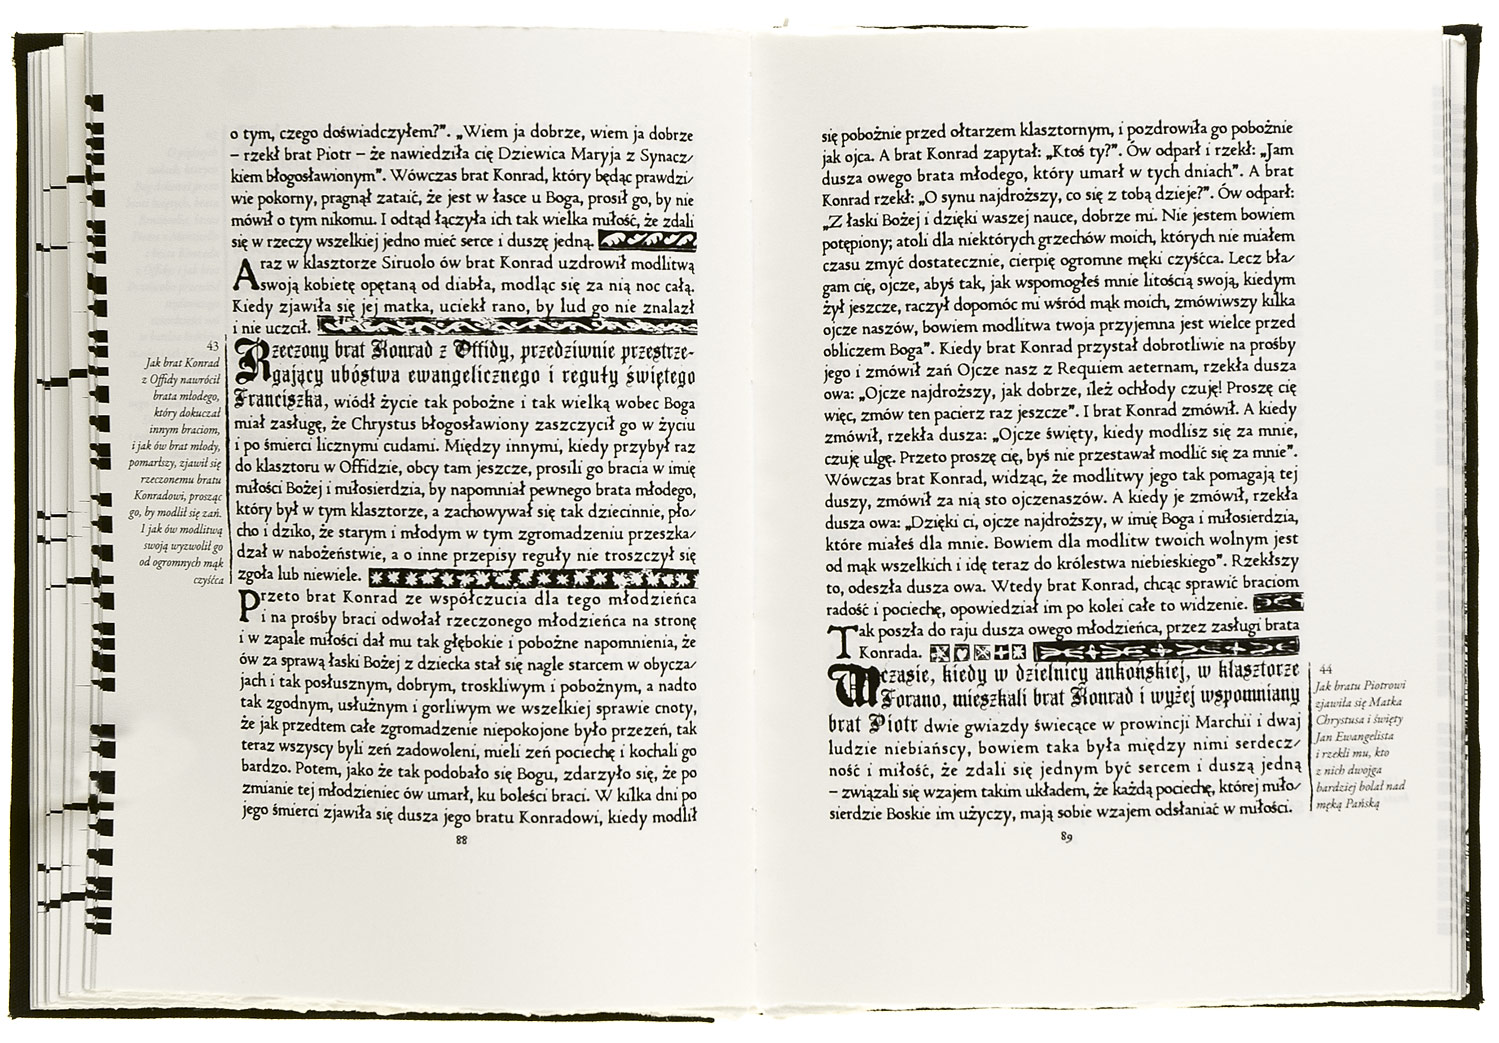 o tym, czego doświadczyłem?”. „Wiem ja dobrze, wiem ja dobrze
– rzekł brat Piotr – że nawiedziła cię Dziewica Maryja z Synacz/
kiem błogosławionym”. Wówczas brat Konrad, który będąc prawdzi/
wie pokorny, pragnął zataić, że jest w łasce u Boga, prosił go, by nie
mówił o tym nikomu. I odtąd łączyła ich tak wielka miłość, że zdali
się w rzeczy wszelkiej jedno mieć serce i duszę jedną.
A raz w klasztorze Siruolo ów brat Konrad uzdrowił modlitwą
swoją kobietę opętaną od diabła, modląc się za nią noc całą.
Kiedy zjawiła się jej matka, uciekł rano, by lud go nie znalazł
i nie uczcił.
43
Jak brat Konrad
z Offidy nawrócił
brata młodego,
który dokuczał
innym braciom,
i jak ów brat młody,
pomarłszy, zjawił się
rzeczonemu bratu
Konradowi, prosząc
go, by modlił się zań.
I jak ów modlitwą
swoją wyzwolił go
od ogromnych mąk
czyśćca
Rzeczony brat Konrad z Offidy, przedziwnie przestrze-
gający ubóstwa ewangelicznego i reguły świętego
Franciszka, wiódł życie tak pobożne i tak wielką wobec Boga
miał zasługę, że Chrystus błogosławiony zaszczycił go w życiu
i po śmierci licznymi cudami. Między innymi, kiedy przybył raz
do klasztoru w Offidzie, obcy tam jeszcze, prosili go bracia w imię
miłości Bożej i miłosierdzia, by napomniał pewnego brata młodego,
który był w tym klasztorze, a zachowywał się tak dziecinnie, pło/
cho i dziko, że starym i młodym w tym zgromadzeniu przeszka/
dzał w nabożeństwie, a o inne przepisy reguły nie troszczył się
zgoła lub niewiele.
Przeto brat Konrad ze współczucia dla tego młodzieńca
i na prośby braci odwołał rzeczonego młodzieńca na stronę
i w zapale miłości dał mu tak głębokie i pobożne napomnienia, że
ów za sprawą łaski Bożej z dziecka stał się nagle starcem w obycza/
jach i tak posłusznym, dobrym, troskliwym i pobożnym, a nadto
tak zgodnym, usłużnym i gorliwym we wszelkiej sprawie cnoty,
że jak przedtem całe zgromadzenie niepokojone było przezeń, tak
teraz wszyscy byli zeń zadowoleni, mieli zeń pociechę i kochali go
bardzo. Potem, jako że tak podobało się Bogu, zdarzyło się, że po
zmianie tej młodzieniec ów umarł, ku boleści braci. W kilka dni po
jego śmierci zjawiła się dusza jego bratu Konradowi, kiedy modlił
88
się pobożnie przed ołtarzem klasztornym, i pozdrowiła go pobożnie
jak ojca. A brat Konrad zapytał: „Ktoś ty?”. Ów odparł i rzekł: „Jam
dusza owego brata młodego, który umarł w tych dniach”. A brat
Konrad rzekł: „O synu najdroższy, co się z tobą dzieje?”. Ów odparł:
„Z łaski Bożej i dzięki waszej nauce, dobrze mi. Nie jestem bowiem
potępiony; atoli dla niektórych grzechów moich, których nie miałem
czasu zmyć dostatecznie, cierpię ogromne męki czyśćca. Lecz bła/
gam cię, ojcze, abyś tak, jak wspomogłeś mnie litością swoją, kiedym
żył jeszcze, raczył dopomóc mi wśród mąk moich, zmówiwszy kilka
ojcze naszów, bowiem modlitwa twoja przyjemna jest wielce przed
obliczem Boga”. Kiedy brat Konrad przystał dobrotliwie na prośby
jego i zmówił zań Ojcze nasz z Requiem aeternam, rzekła dusza
owa: „Ojcze najdroższy, jak dobrze, ileż ochłody czuję! Proszę cię
więc, zmów ten pacierz raz jeszcze”. I brat Konrad zmówił. A kiedy
zmówił, rzekła dusza: „Ojcze święty, kiedy modlisz się za mnie,
czuję ulgę. Przeto proszę cię, byś nie przestawał modlić się za mnie”.
Wówczas brat Konrad, widząc, że modlitwy jego tak pomagają tej
duszy, zmówił za nią sto ojczenaszów. A kiedy je zmówił, rzekła
dusza owa: „Dzięki ci, ojcze najdroższy, w imię Boga i miłosierdzia,
które miałeś dla mnie. Bowiem dla modlitw twoich wolnym jest
od mąk wszelkich i idę teraz do królestwa niebieskiego”. Rzekłszy
to, odeszła dusza owa. Wtedy brat Konrad, chcąc sprawić braciom
radość i pociechę, opowiedział im po kolei całe to widzenie.
Tak poszła do raju dusza owego młodzieńca, przez zasługi brata
Konrada.
W czasie, kiedy w dzielnicy ankońskiej, w klasztorze
Forano, mieszkali brat Konrad i wyżej wspomniany
brat Piotr dwie gwiazdy świecące w prowincji Marchii i dwaj
ludzie niebiańscy, bowiem taka była między nimi serdecz/
ność i miłość, że zdali się jednym być sercem i duszą jedną
– związali się wzajem takim układem, że każdą pociechę, której miło/
sierdzie Boskie im użyczy, mają sobie wzajem odsłaniać w miłości.
44
Jak bratu Piotrowi
zjawiła się Matka
Chrystusa i święty
Jan Ewangelista
i rzekli mu, kto
z nich dwojga
bardziej bolał nad
męką Pańską
89